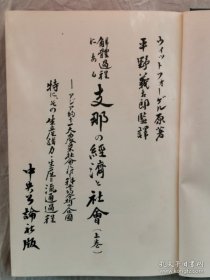 ウィットフォーゲル原著
平野義太郎監譯
解體過程
にある
支那の經濟と社會(上卷)
―アジア的な一大農業社會に對する科學的分析の企圖―
特に、その生産諸力・生産=流通過程
中央公論社版